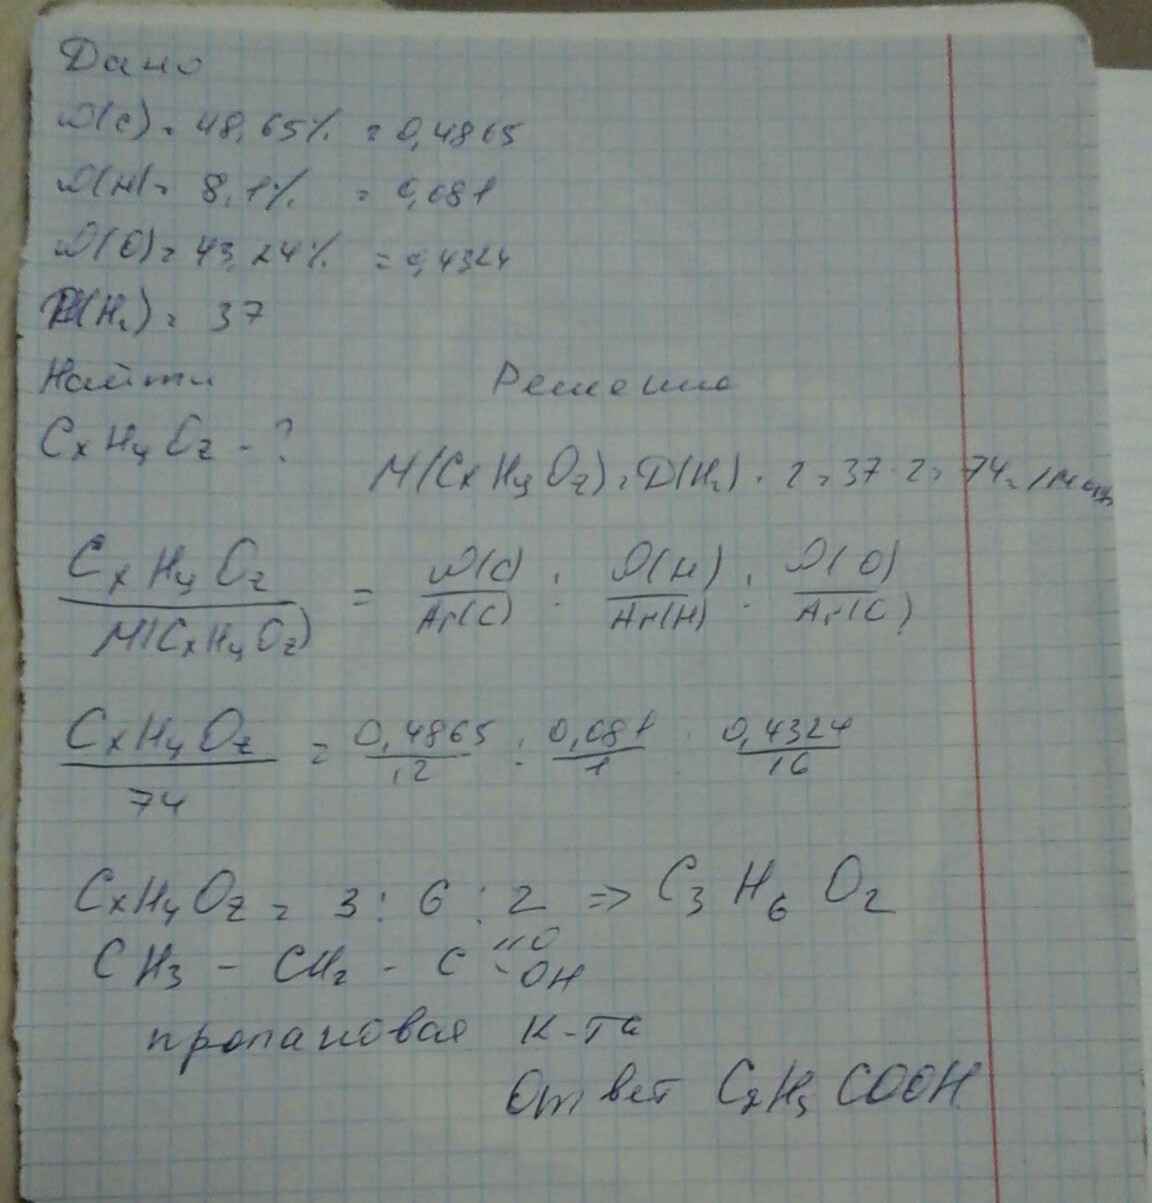 Дано
ω(C) = 48,65% = 0,4865
ω(H) = 8,1% = 0,081
ω(O) = 43,24% = 0,4324
D(H₂) = 37
Найти
Решение
CxHyOz - ?
M(CxHyOz) = D(H₂) · 2 = 37 · 2 = 74 г/моль
CxHyOz / M(CxHyOz) = ω(C) / Ar(C) : ω(H) / Ar(H) : ω(O) / Ar(O)
CxHyOz / 74 = 0,4865 / 12 : 0,081 / 1 : 0,4324 / 16
CxHyOz = 3 : 6 : 2 => C₃H₆O₂
CH₃ - CH₂ - C =O -OH
пропановая к-та
Ответ C₂H₅COOH